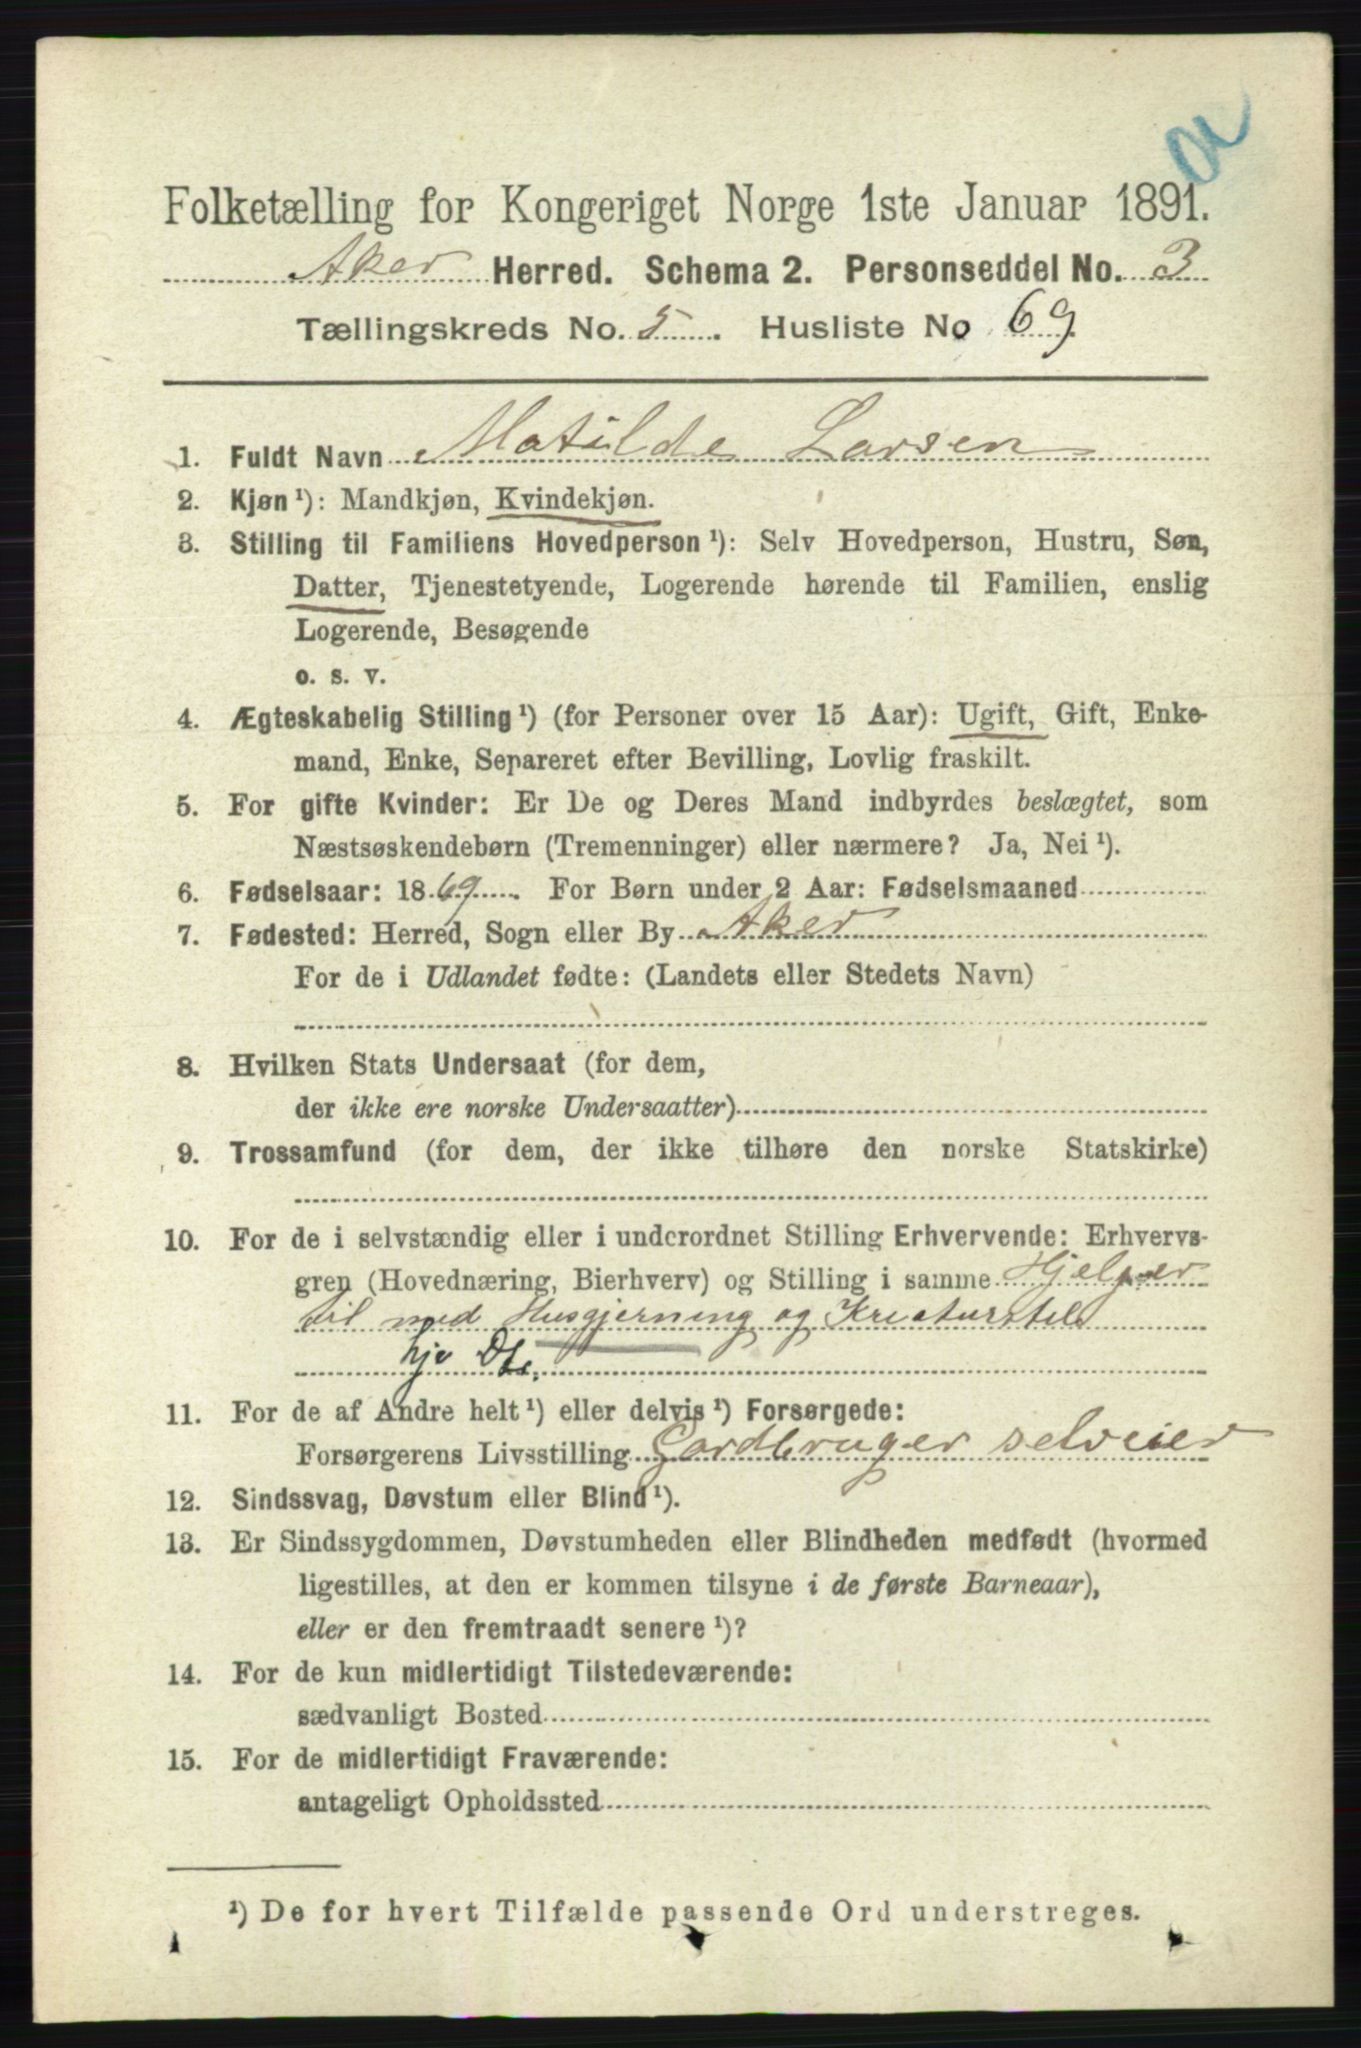 Folketælling for Kongeriget Norge 1ste Januar 1891.
Aker Herred. Schema 2. Personseddel No. 3
Tællingskreds No. 5. Husliste No 69
1. Fuldt Navn Matilde Larsen
2. Kjøn ¹): Mandkjøn, Kvindekjøn.
3. Stilling til Familiens Hovedperson ¹): Selv Hovedperson, Hustru, Søn,
Datter, Tjenestetyende, Logerende hørende til Familien, enslig
Logerende, Besøgende
o. s. v.
4. Ægteskabelig Stilling ¹) (for Personer over 15 Aar): Ugift, Gift, Enke-
mand, Enke, Separeret efter Bevilling, Lovlig fraskilt.
5. For gifte Kvinder: Er De og Deres Mand indbyrdes beslægtet, som
Næstsøskendebørn (Tremenninger) eller nærmere? Ja, Nei ¹).
6. Fødselsaar: 1869. For Børn under 2 Aar: Fødselsmaaned
7. Fødested: Herred, Sogn eller By Aker
For de i Udlandet fødte: (Landets eller Stedets Navn)
8. Hvilken Stats Undersaat (for dem,
der ikke ere norske Undersaatter)
9. Trossamfund (for dem, der ikke tilhøre den norske Statskirke)
10. For de i selvstændig eller i underordnet Stilling Erhvervende: Erhvervs-
gren (Hovednæring, Bierhverv) og Stilling i samme Hjelper
til med Husgjerning og Kreaturstel
11. For de af Andre helt ¹) eller delvis ¹) Forsørgede:
Forsørgerens Livsstilling Gardbruger selveier
12. Sindssvag, Døvstum eller Blind ¹).
13. Er Sindssygdommen, Døvstumheden eller Blindheden medfødt (hvormed
ligestilles, at den er kommen tilsyne i de første Barneaar),
eller er den fremtraadt senere ¹)?
14. For de kun midlertidigt Tilstedeværende:
sædvanligt Bosted
15. For de midlertidigt Fraværende:
antageligt Opholdssted
¹) De for hvert Tilfælde passende Ord understreges.